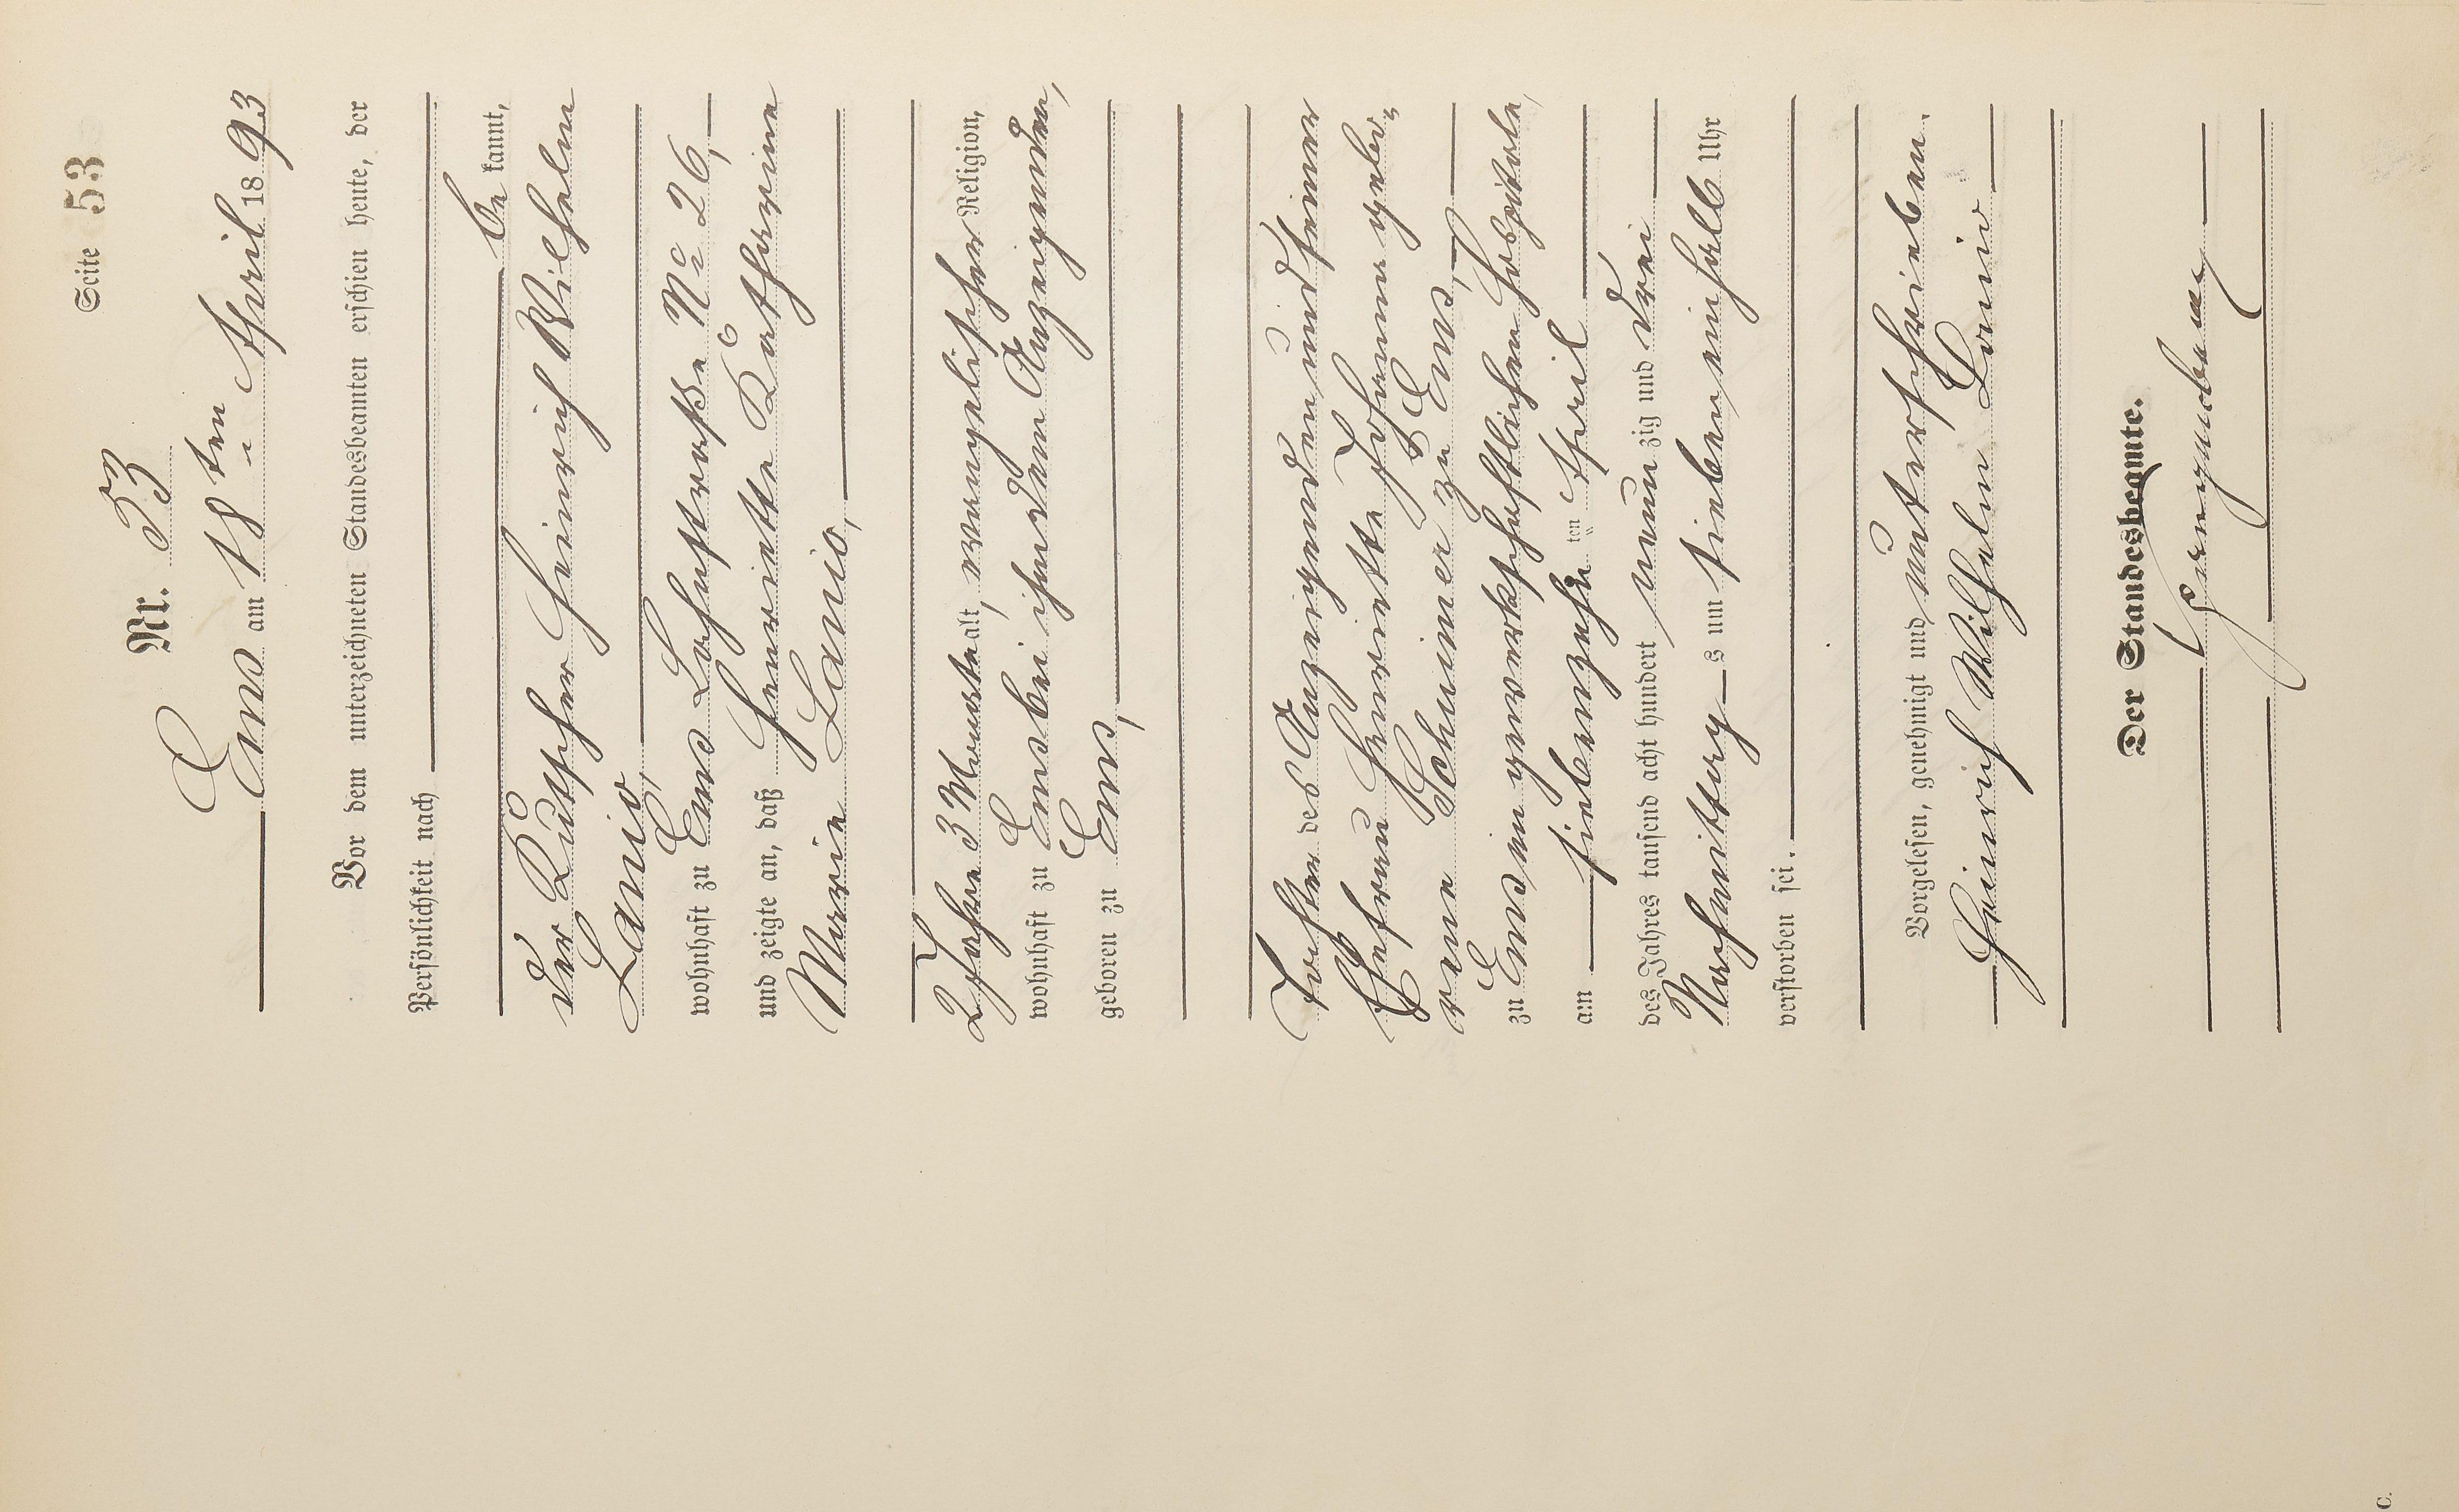 Seite 53
Nr. 53
Ems am 18ten April 1893
Vor dem unterzeichneten Standesbeamten erschien heute, der
Persönlichkeit nach
bekannt,
der Kutscher Heinrich Wilhelm
Lanio,
wohnhaft zu Ems Lahnstraße No 26,
und zeigte an, daß Henriette Katharine
Marie Lanio,
2 Jahre 3 Monate alt, evangelischer Religion,
wohnhaft zu Ems bei ihm dem Anzeigenden,
geboren zu Ems,
Tochter des Anzeigenden und seiner
Ehefrau Henriette Johanna gebo-
rene Schuimer zu Ems,
zu Ems im gewerkschaftlichen Hospitale,
am siebenzehnten April
des Jahres tausend acht hundert neunzig und drei
Nachmittags um sieben einhalb Uhr
verstorben sei.
Vorgelesen, genehmigt und unterschrieben.
Heinrich Wilhelm Lanio
Der Standesbeamte.
C.